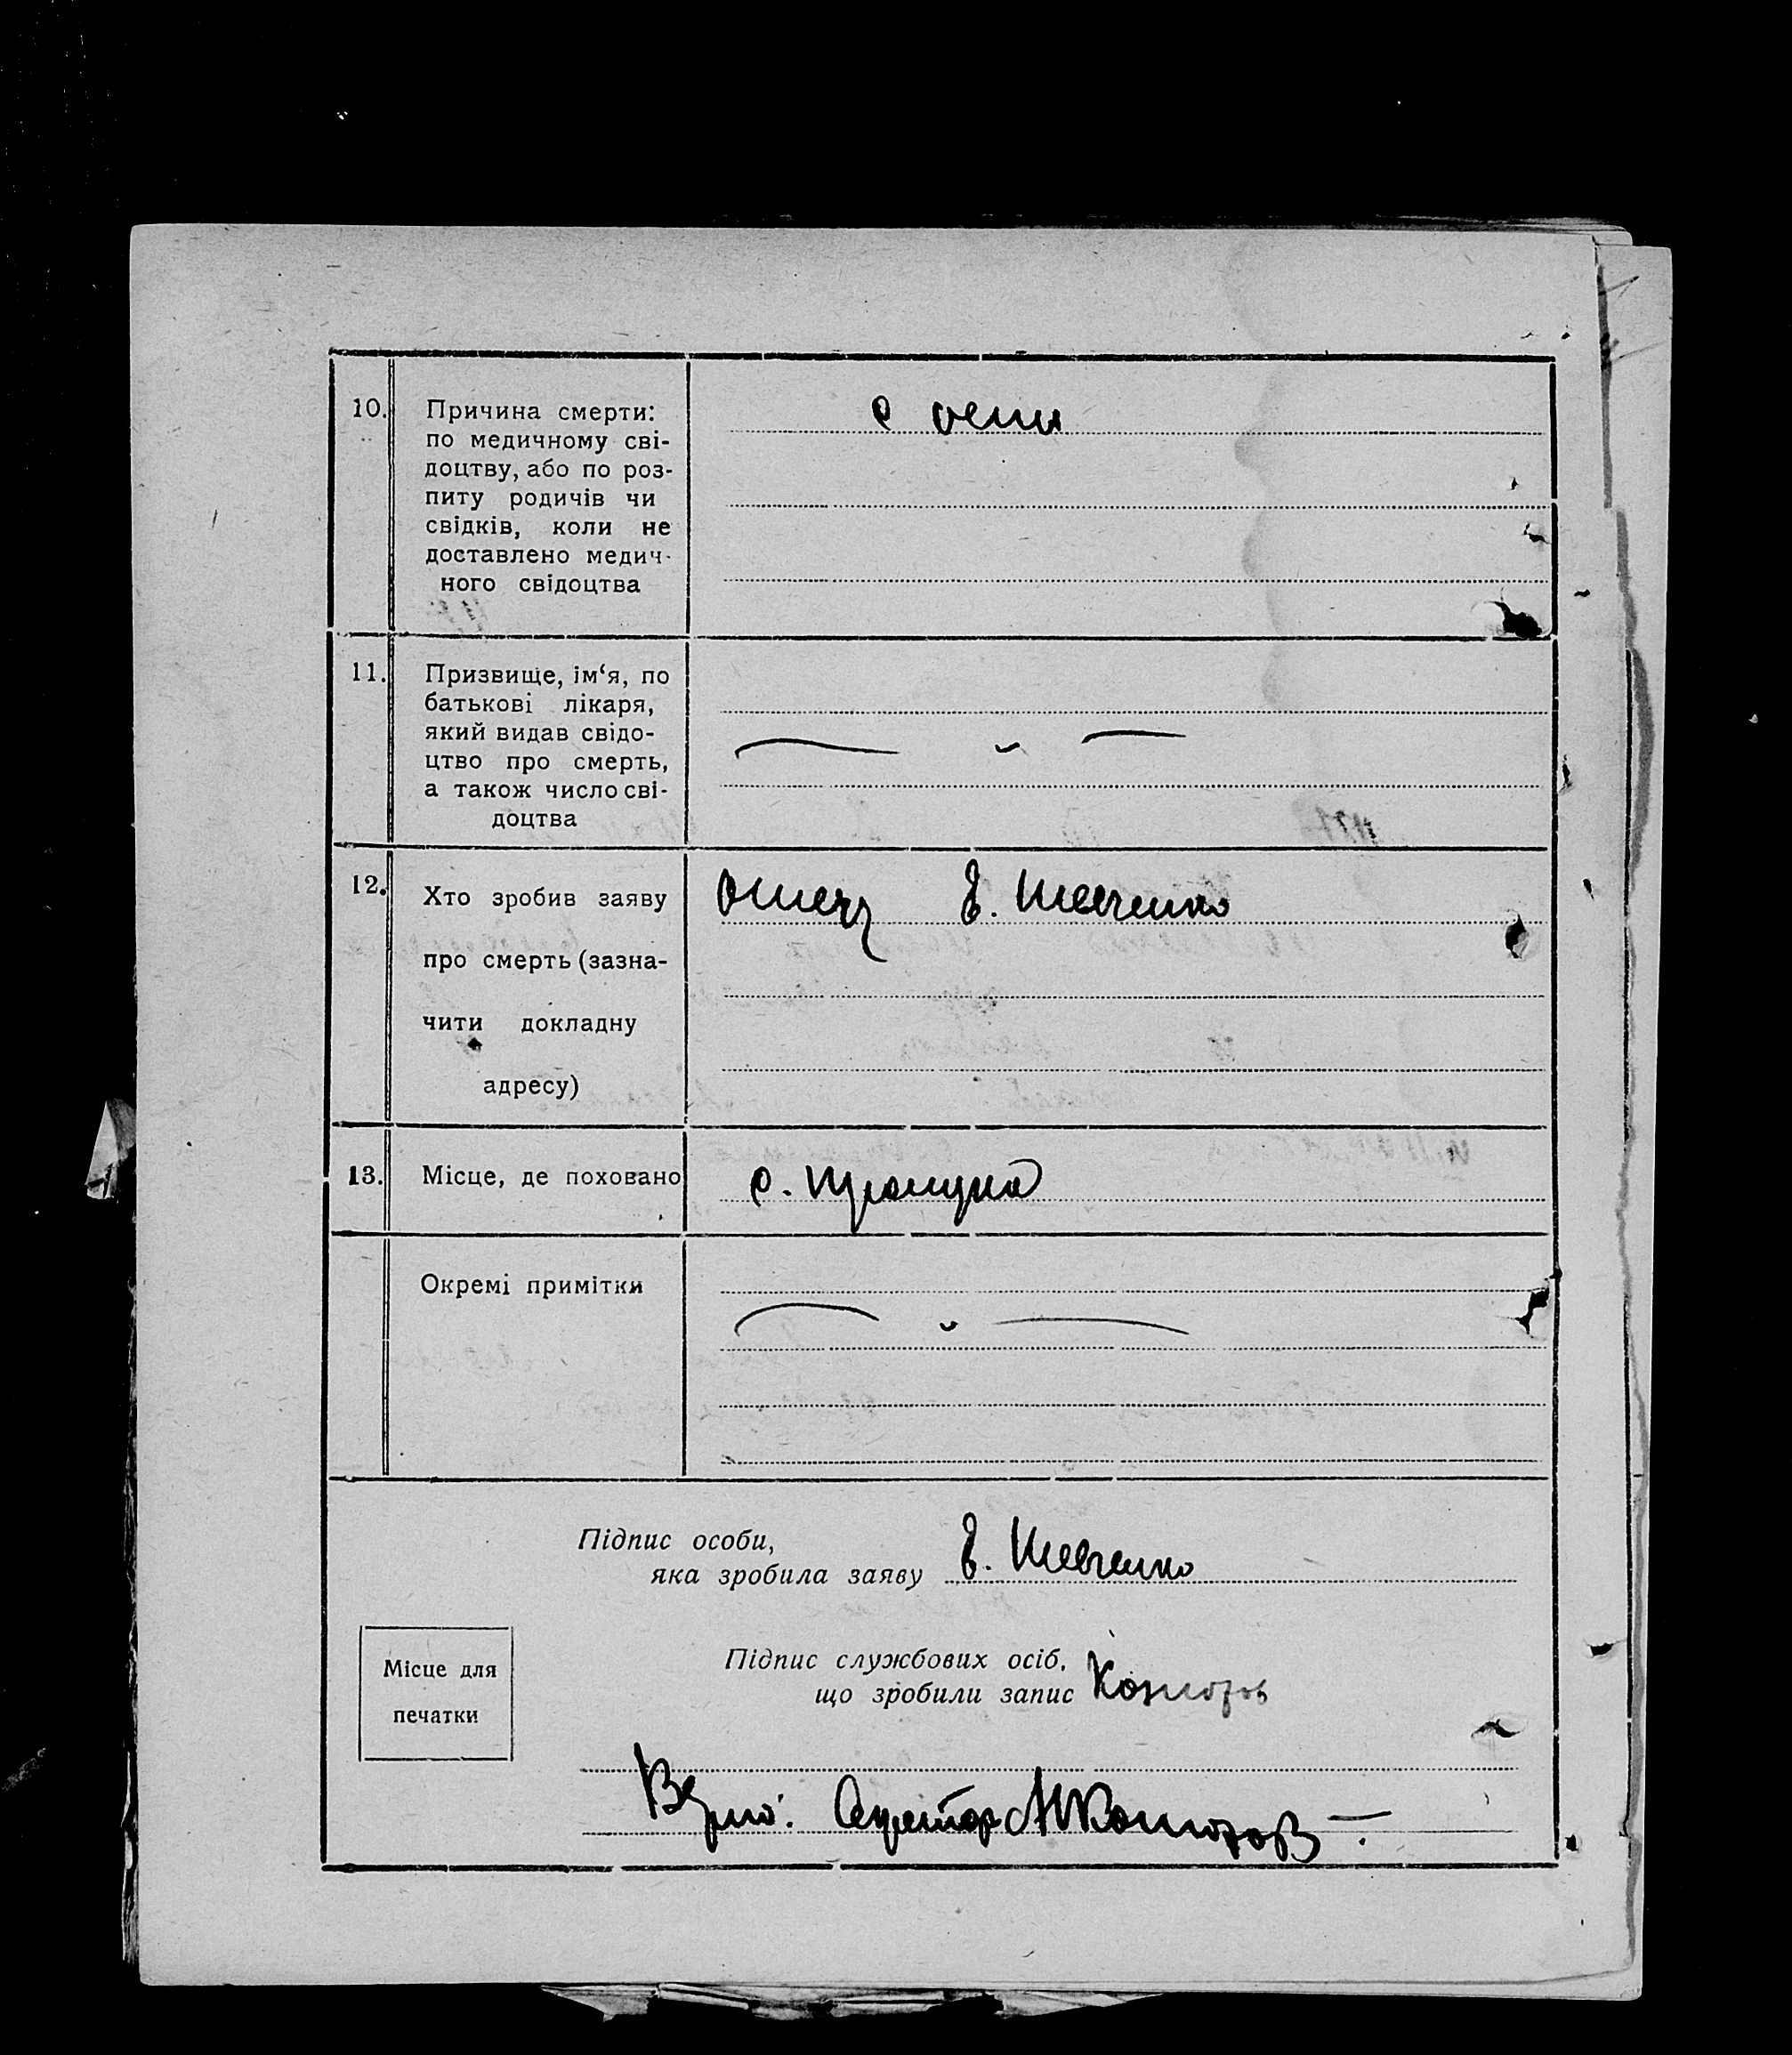 10. Причина смерти:
по медичному сві-
доцтву, або по роз-
питу родичів чи
свідків, коли не
доставлено медич-
ного свідоцтва
11. Призвище, ім‘я, по
батькові лікаря,
який видав свідо-
цтво про смерть,
а також число сві-
доцтва
12. Хто зробив заяву
про смерть (зазна-
чити докладну
адресу)
Отец Е. Шевченко
13. Місце, де поховано
с.
Окремі примітки
Підпис особи,
яка зробила заяву Е. Шевченко
Місце для
печатки
Підпис службових осіб,
що зробили запис